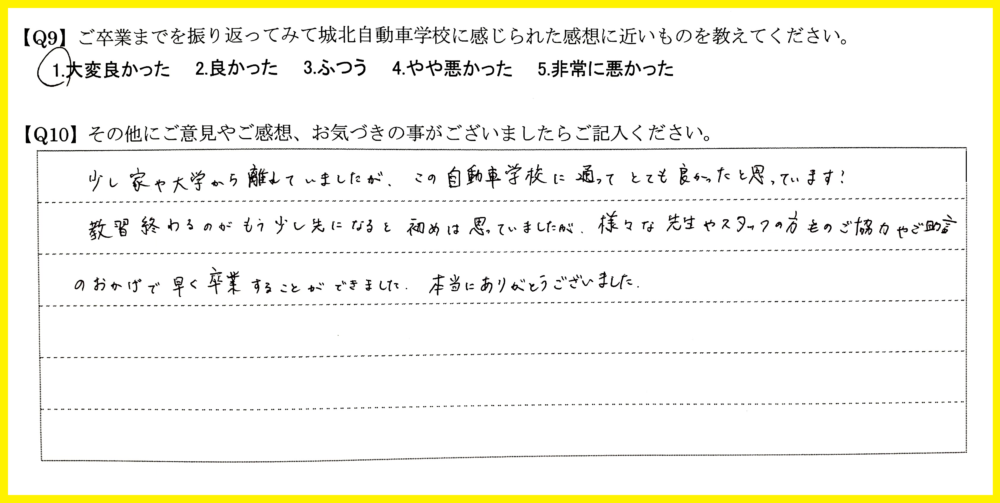 【Q9】ご卒業までを振り返ってみて城北自動車学校に感じられた感想に近いものを教えてください。
1.大変良かった 2.良かった 3.ふつう 4.やや悪かった 5.非常に悪かった
【Q10】その他にご意見やご感想、お気づきの事がございましたらご記入ください。
少し家や大学から離れていましたが、この自動車学校に通ってとても良かったと思っています!
教習終わるのがもう少し先になると初めは思っていましたが、様々な先生やスタッフの方々のご協力やご助言
のおかげで早く卒業することができました。本当にありがとうございました。